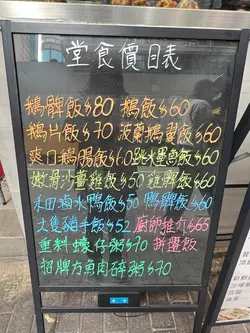 堂食價目表
鵝髀飯$80 鵝飯$60
鵝片飯$70 菠蘿鵝翼飯$60
爽口鵝腸飯$60 跳水墨魚飯$60
嫩骨沙薑雞飯$50 雞髀飯$60
和田滷水鴨飯$50 鴨髀飯$60
大隻豬手飯$52 廚師推介$65
重料蠔仔粥$70 拼雙飯
招牌方魚肉碎粥$70